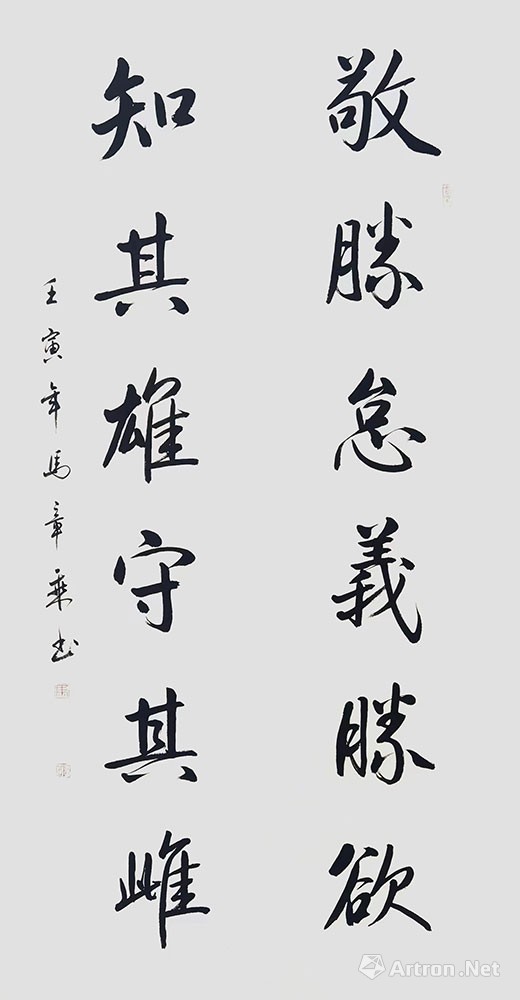 敬勝怠義勝欲
知其雄守其雌
壬寅年馬章乘书
Artron.Net